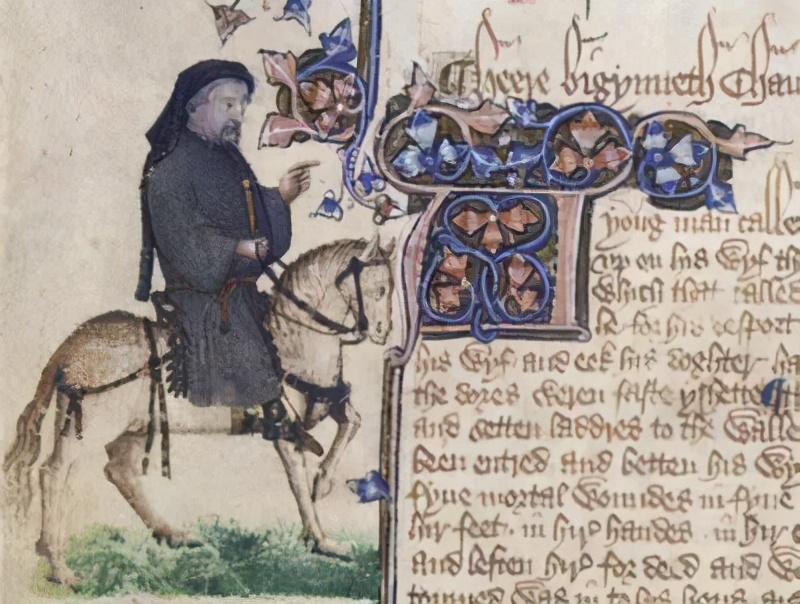 Heere bigynneth Chau
yong man calle
up on his Wyf th
Which that called
he for his desport
his Wyf and eek his doghter ha
the dores Weren faste yshette
and setten laddres to the Walle
been entred and betten his Wy
fyue mortal Woundes in fyue
hir feet in hir handes in hir e
and leften hir for deed and We
tourned Was in to his hous and